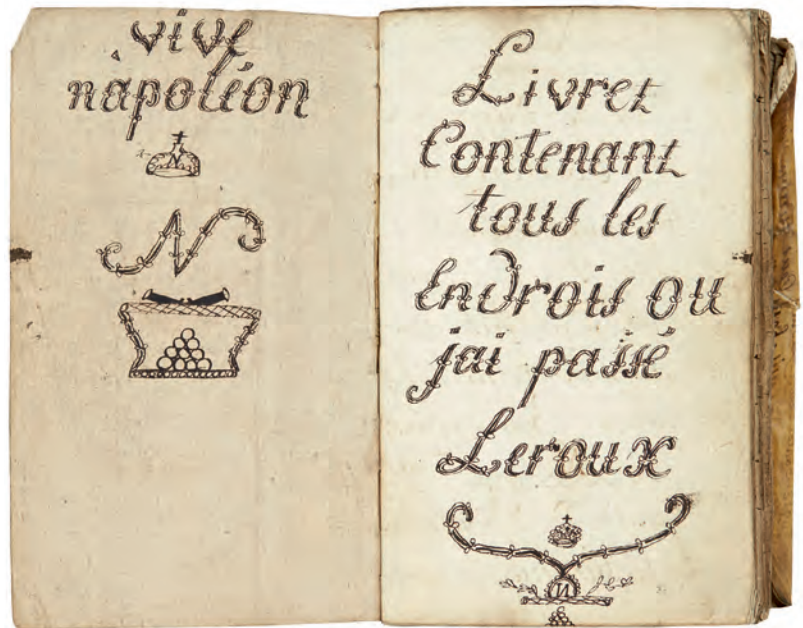 vive
napoléon
N
Livret
Contenant
tous les
Endrois ou
jai passé
Leroux
N